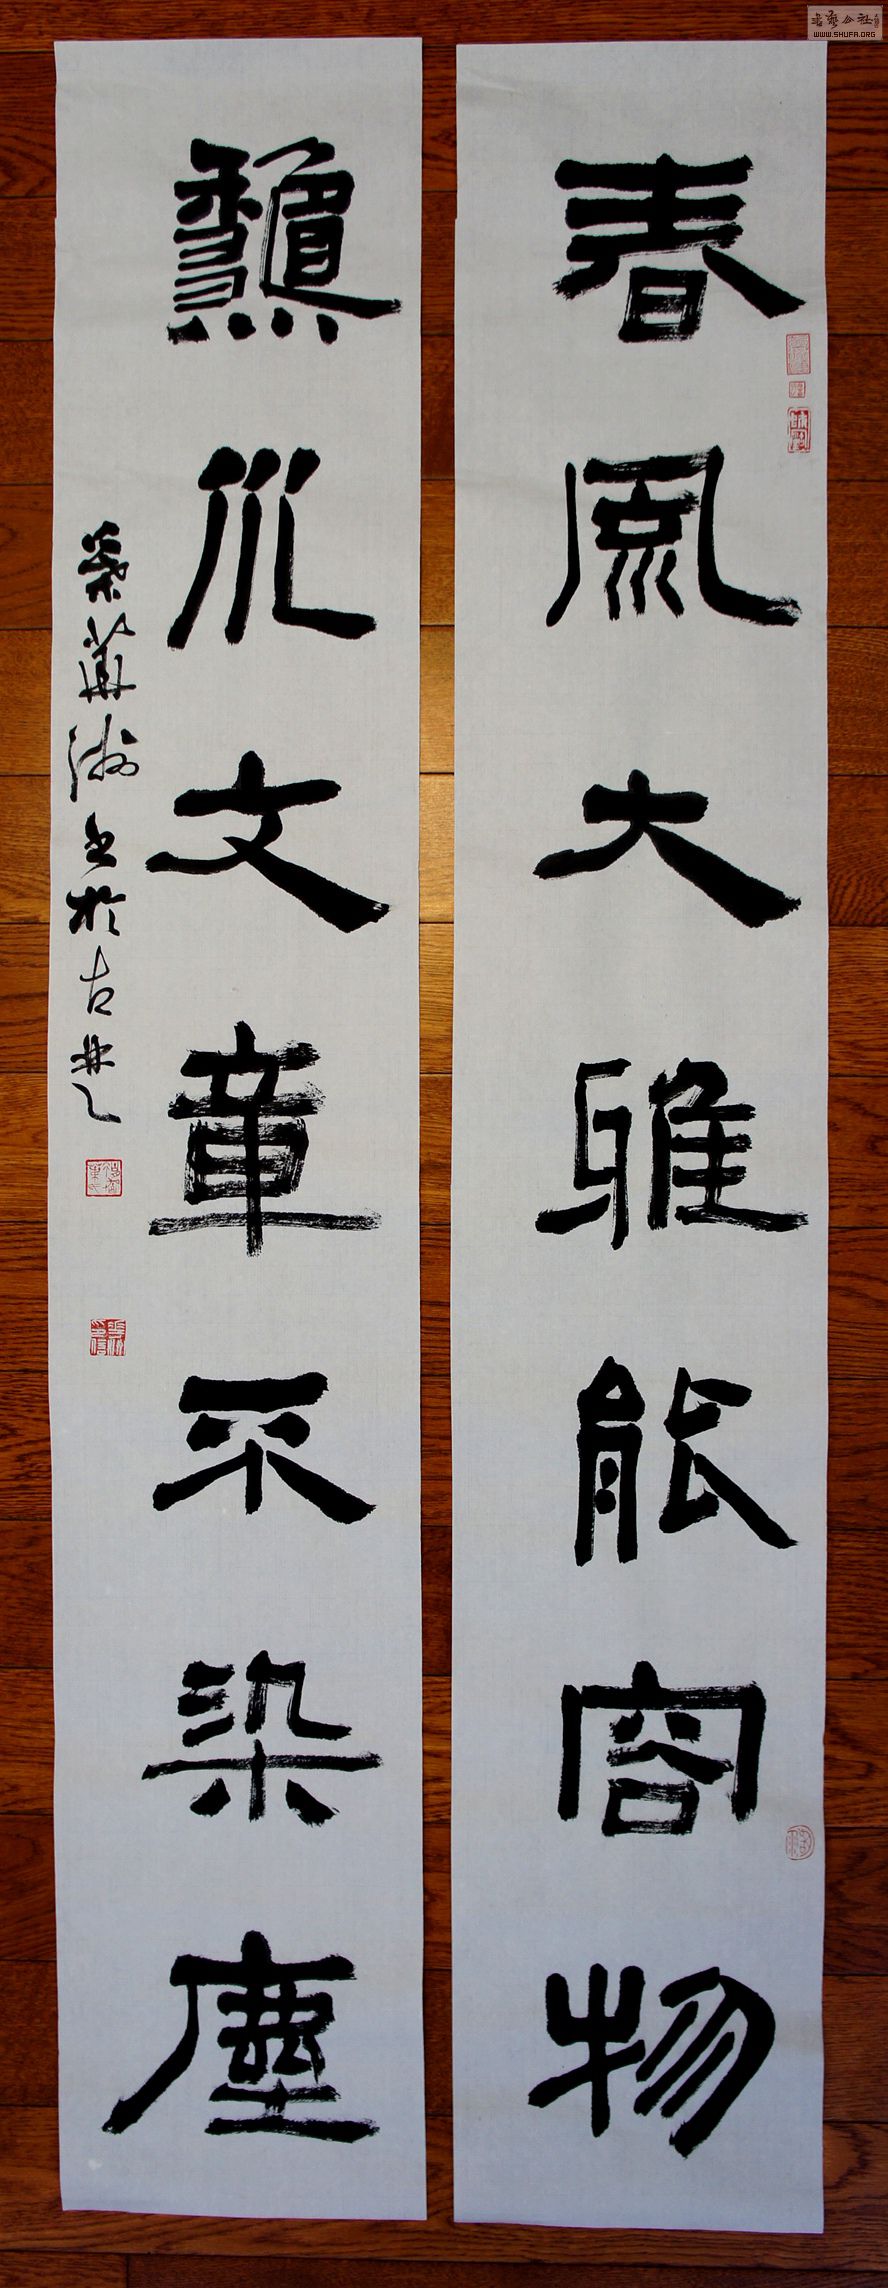 春風大雅能容物
龝水文章不染塵
華洲書於古楚
書藝公社
WWW.SHUFA.ORG